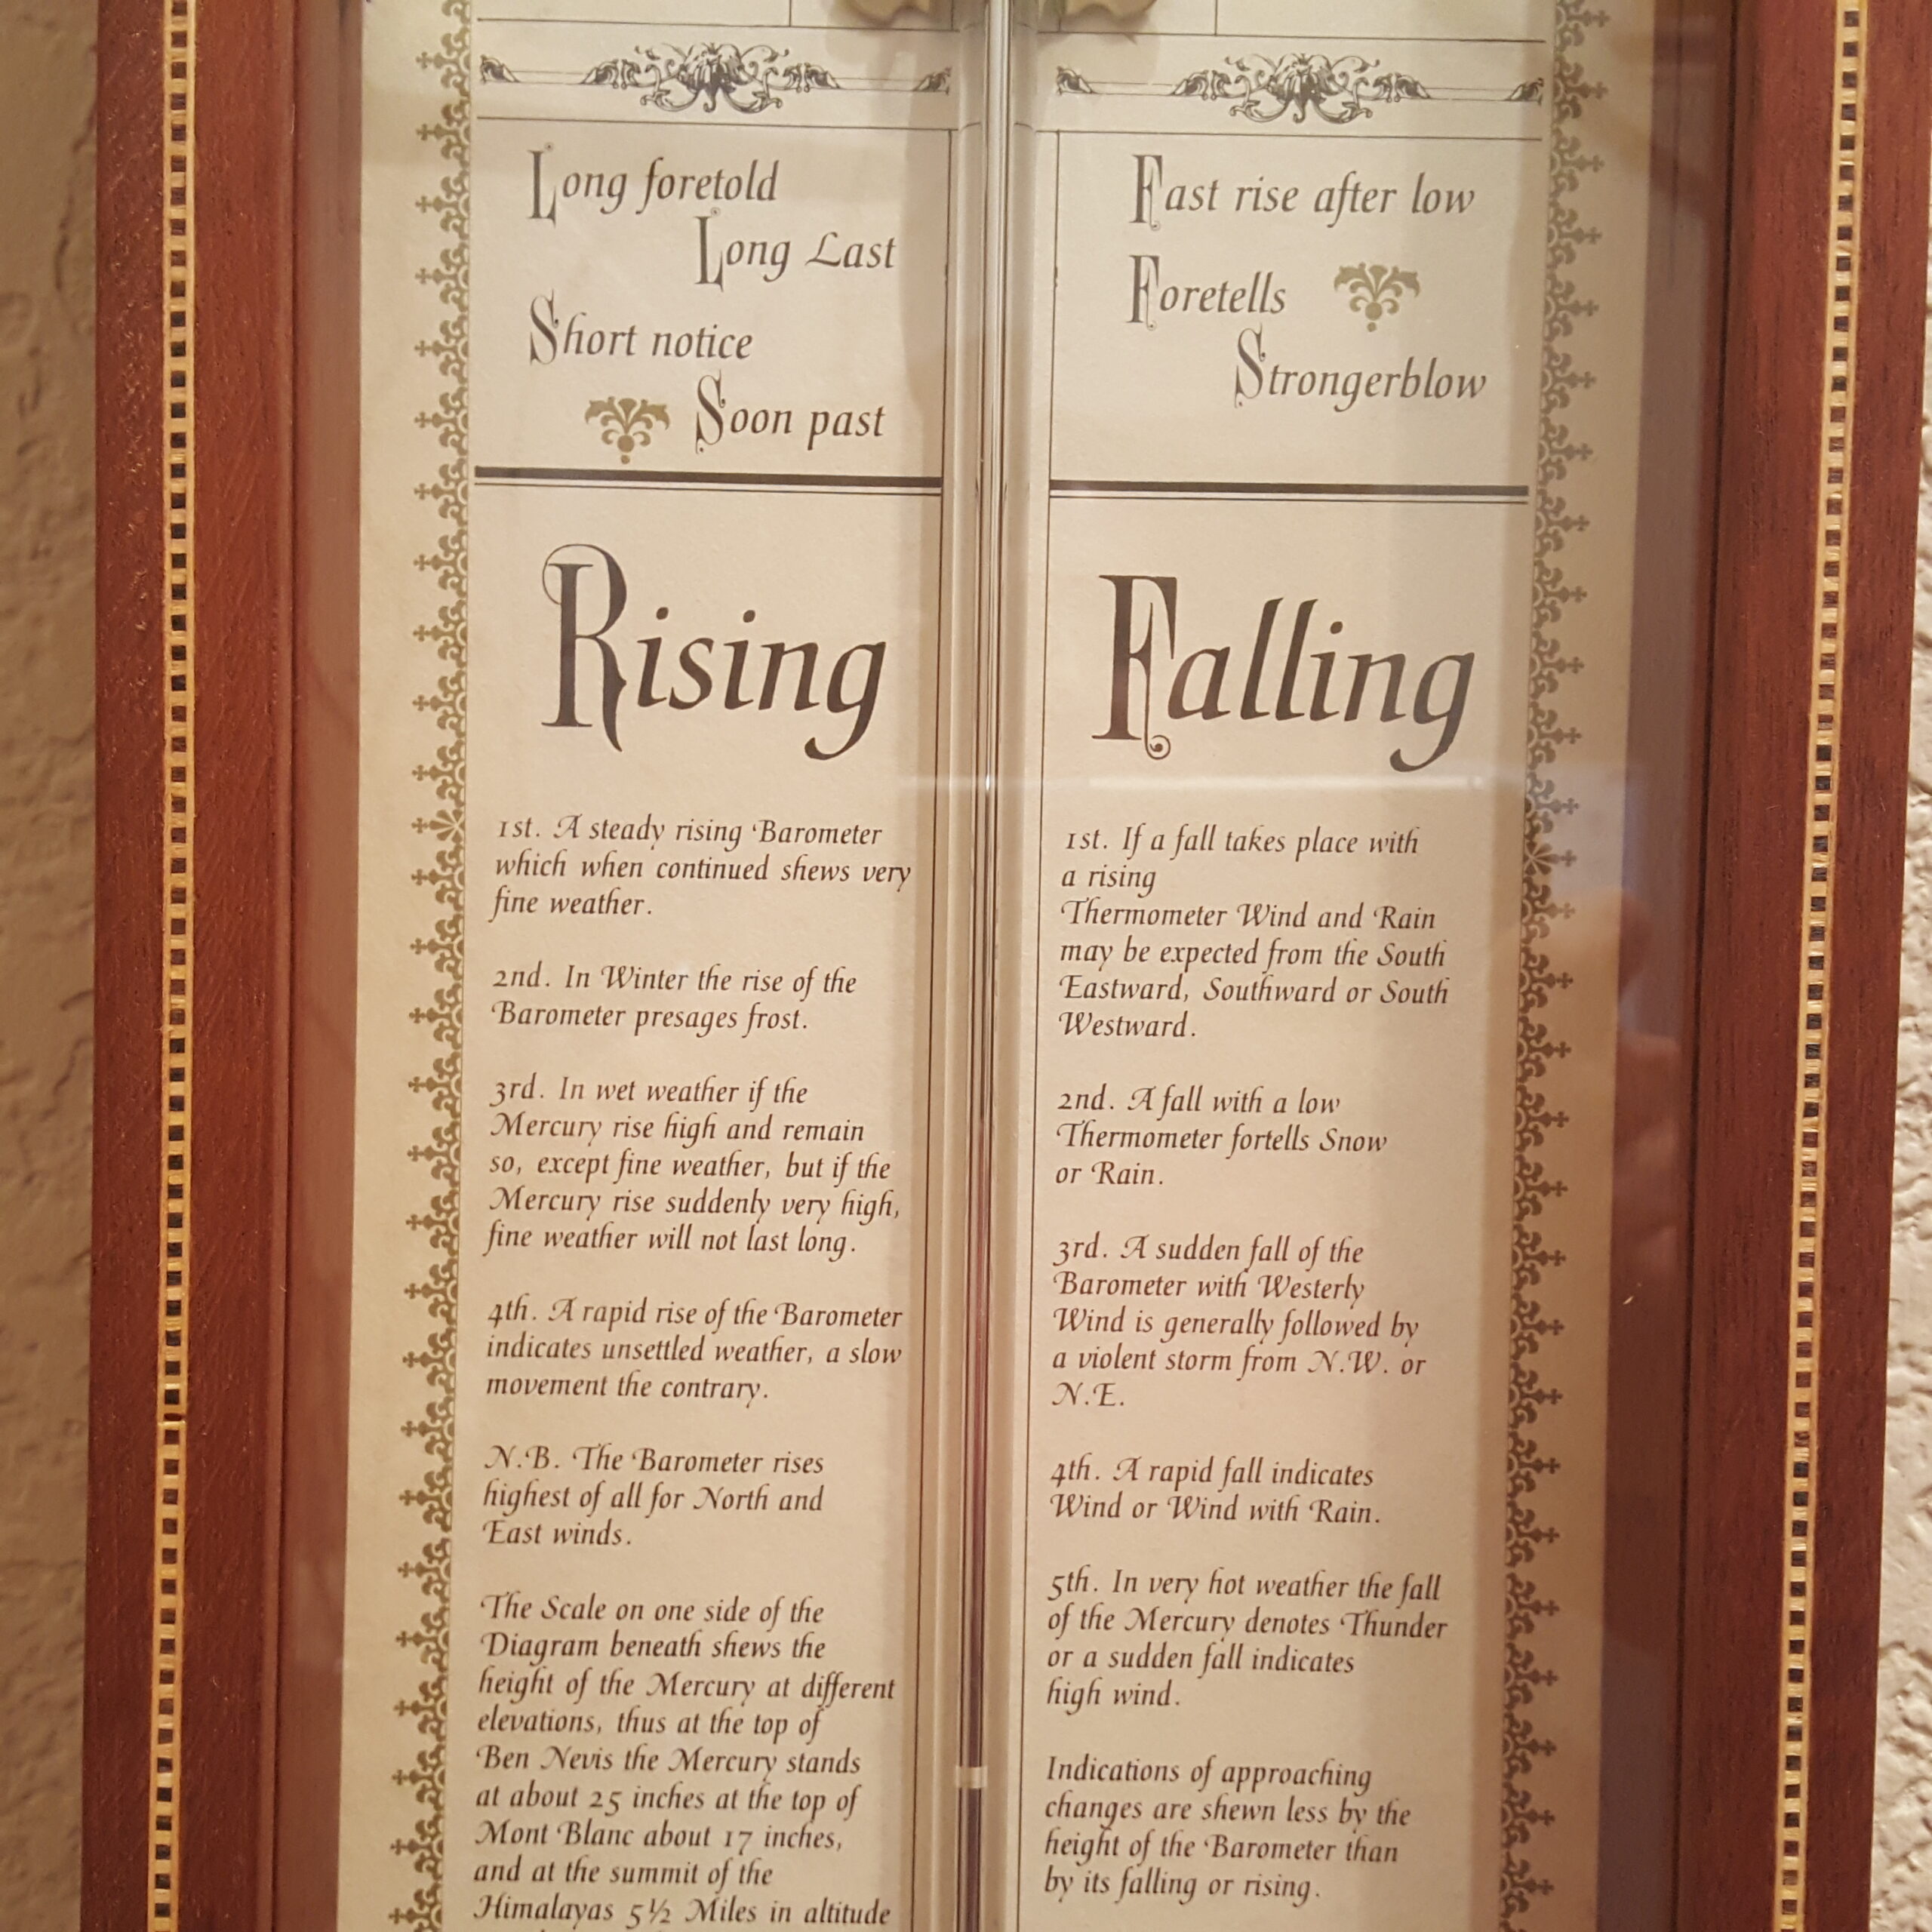 Long foretold
Long Last
Short notice
Soon past
Rising
1st. A steady rising Barometer
which when continued shews very
fine weather.
2nd. In Winter the rise of the
Barometer presages frost.
3rd. In wet weather if the
Mercury rise high and remain
so, except fine weather, but if the
Mercury rise suddenly very high,
fine weather will not last long.
4th. A rapid rise of the Barometer
indicates unsettled weather, a slow
movement the contrary.
N.B. The Barometer rises
highest of all for North and
East winds.
The Scale on one side of the
Diagram beneath shews the
height of the Mercury at different
elevations, thus at the top of
Ben Nevis the Mercury stands
at about 25 inches at the top of
Mont Blanc about 17 inches,
and at the summit of the
Himalayas 5½ Miles in altitude
Fast rise after low
Foretells
Strongerblow
Falling
1st. If a fall takes place with
a rising
Thermometer Wind and Rain
may be expected from the South
Eastward, Southward or South
Westward.
2nd. A fall with a low
Thermometer fortells Snow
or Rain.
3rd. A sudden fall of the
Barometer with Westerly
Wind is generally followed by
a violent storm from N.W. or
N.E.
4th. A rapid fall indicates
Wind or Wind with Rain.
5th. In very hot weather the fall
of the Mercury denotes Thunder
or a sudden fall indicates
high wind.
Indications of approaching
changes are shewn less by the
height of the Barometer than
by its falling or rising.